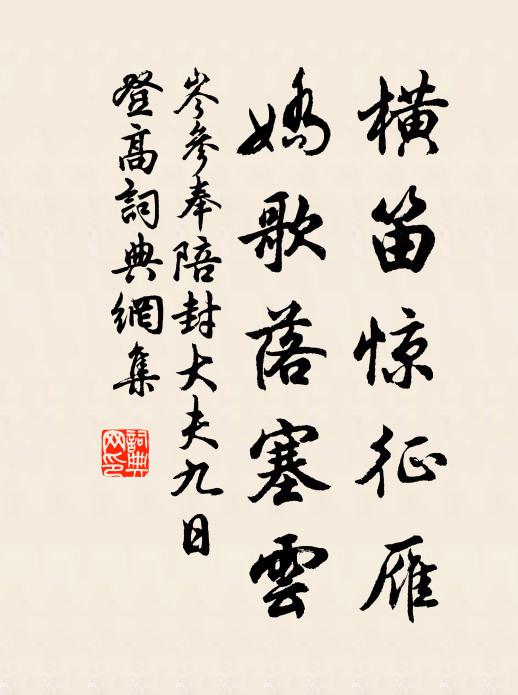 横笛惊征雁
娇歌落塞雲
岑參奉陪封大夫九日
登高詞典網集
詞典
网印